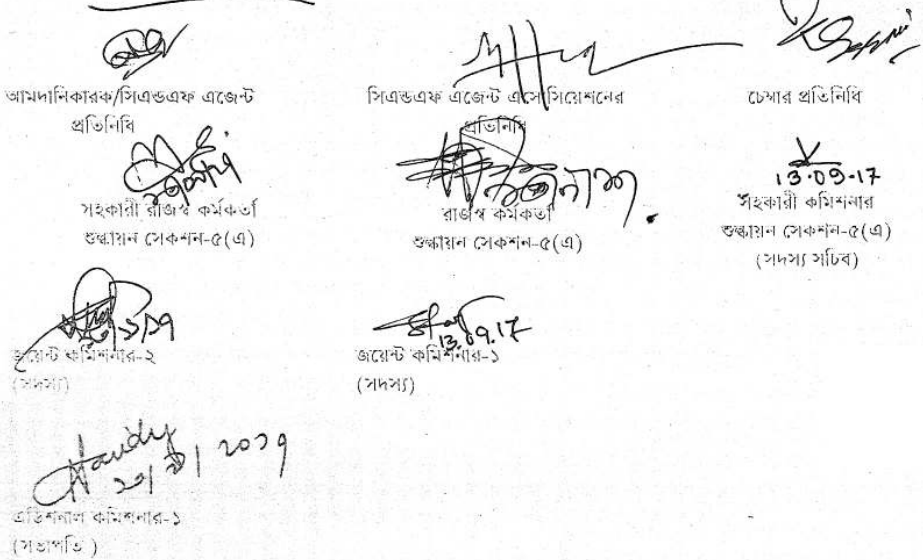 আমদানিকারক/সিএন্ডএফ এজেন্ট
প্রতিনিধি
সিএন্ডএফ এজেন্ট এসোসিয়েশনের
প্রতিনিধি
চেম্বার প্রতিনিধি
সহকারী রাজস্ব কর্মকর্তা
শুল্কায়ন সেকশন-৫(এ)
রাজস্ব কর্মকর্তা
শুল্কায়ন সেকশন-৫(এ)
13.09.17
সহকারী কমিশনার
শুল্কায়ন সেকশন-৫(এ)
(সদস্য সচিব)
জয়েন্ট কমিশনার-২
(সদস্য)
13.09.17
জয়েন্ট কমিশনার-১
(সদস্য)
২০১৭
এডিশনাল কমিশনার-১
(সভাপতি )